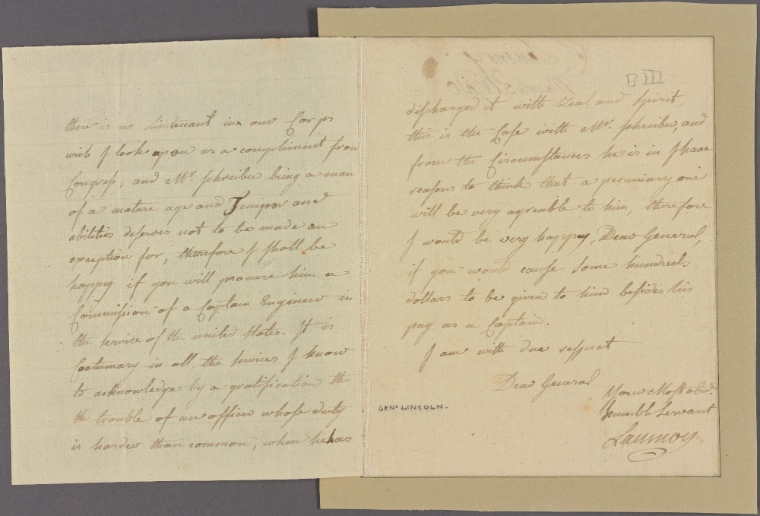 there is no lieutenant in our Corps
wich I look upon as a compliment from
Congress, and Mr. Schreiber being a man
of a mature age and Temper and
abilities deserves not to be made an
exception for, therefore I shall be
happy if you will procure him a
Commission of a Captain Engineer in
the service of the united States. It is
Costumary in all, the services I know
to acknowledge by a gratification the
the trouble of an officer whose duty
is harder than common, when he has
B III
discharged it with Zeal and Spirit,
this is the Case with Mr. Schreiber, and
from the Circumstances he is in I have
reasons to think that a pecuniary one
will be very agreable to him, therefore
I would be very happy, Dear General,
if you would cause some hundred
dollars to be given to him besides his
pay as a Captain.
I am with due respect
Dear General
Your Most obed.
humble Servant
Laumoy
GENL LINCOLN.